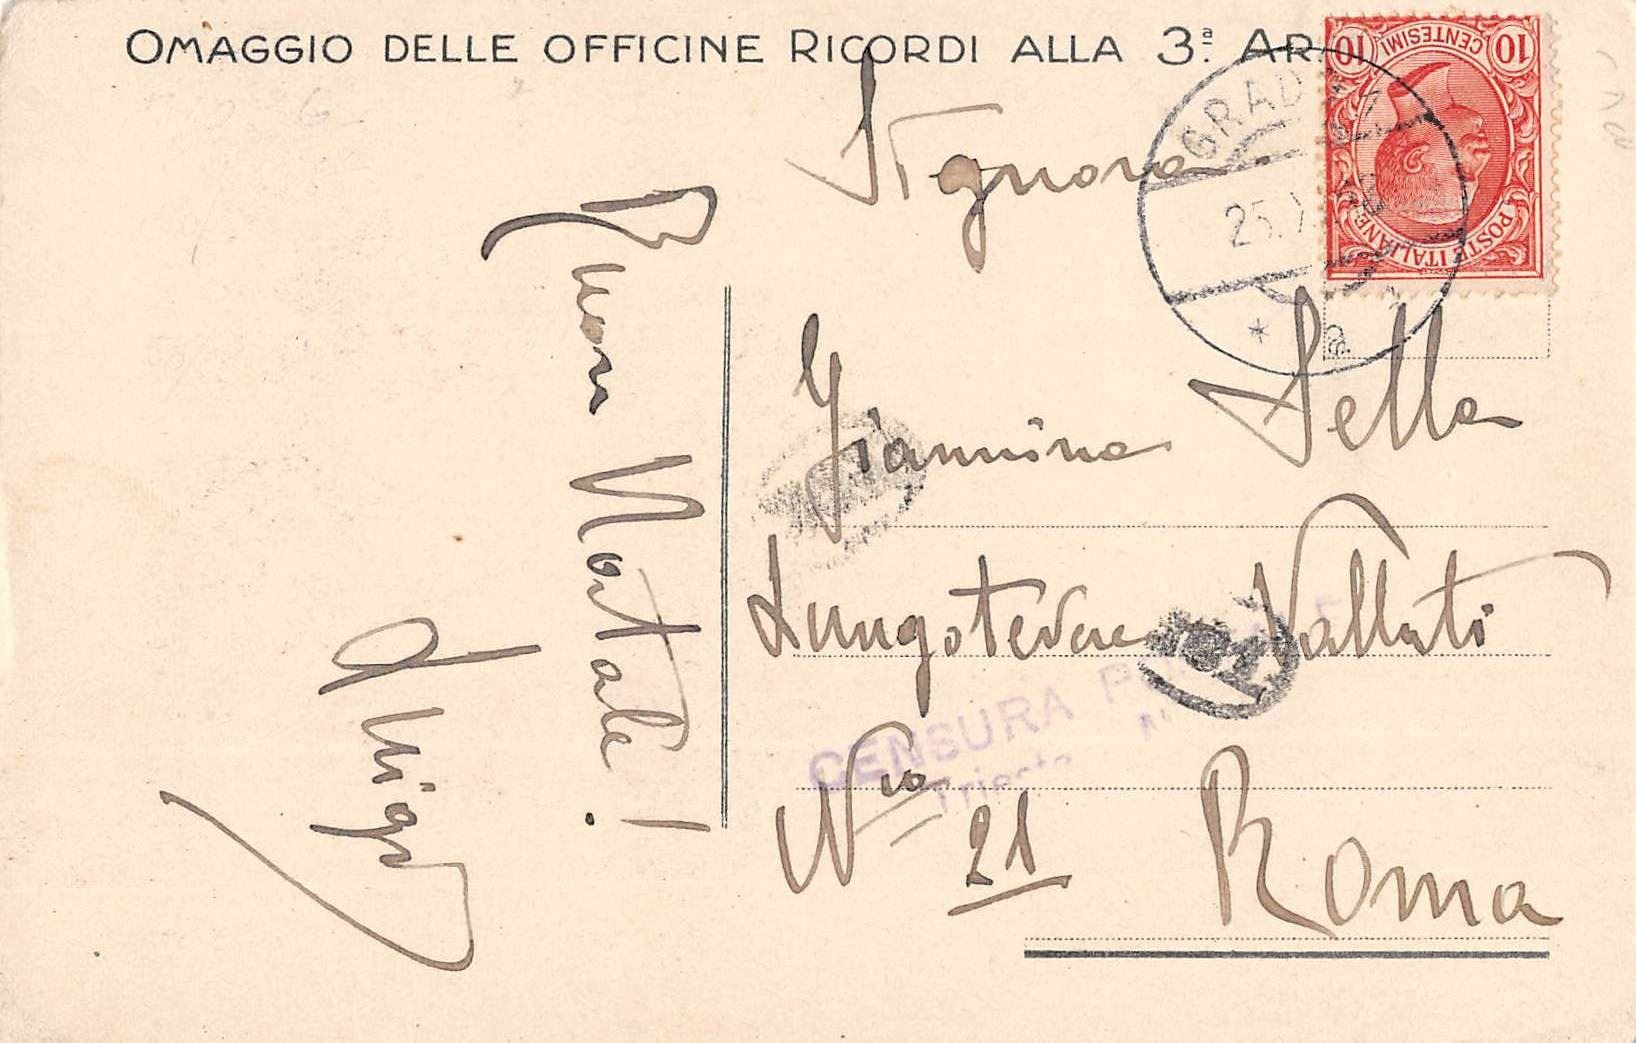 OMAGGIO DELLE OFFICINE RICORDI ALLA 3ª AR
10 10
CENTESIMI
POSTE ITALIANE
GRAD
25.
a
Signora
Giannina Sella
Lungotevere Vallati
Nro 21
Roma
CENSURA
Trieste
Buon Natale!
Luigi